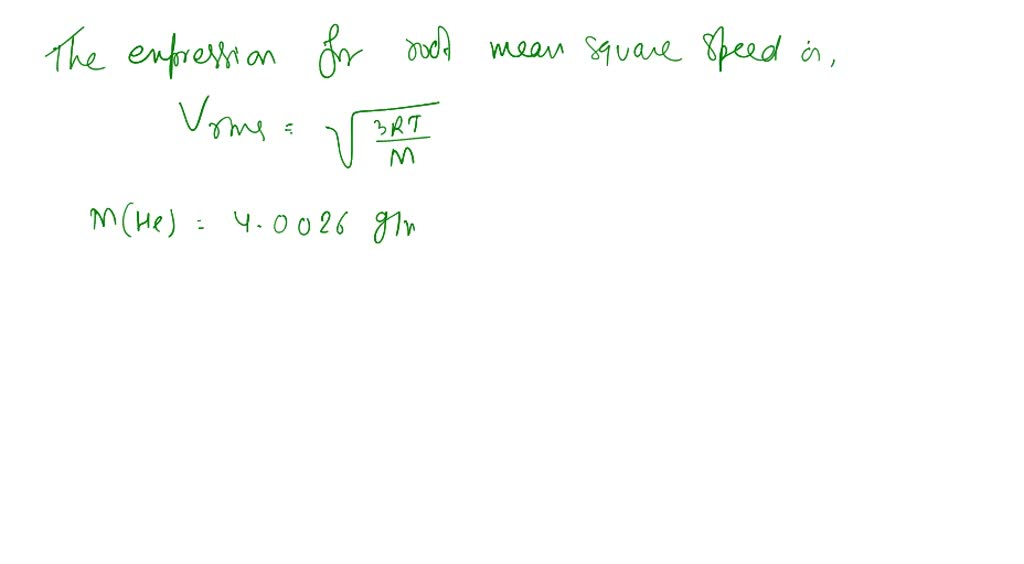 The expression for root mean square speed is,
Vrms = √(3RT/M)
M(He) = 4.0026 g/m